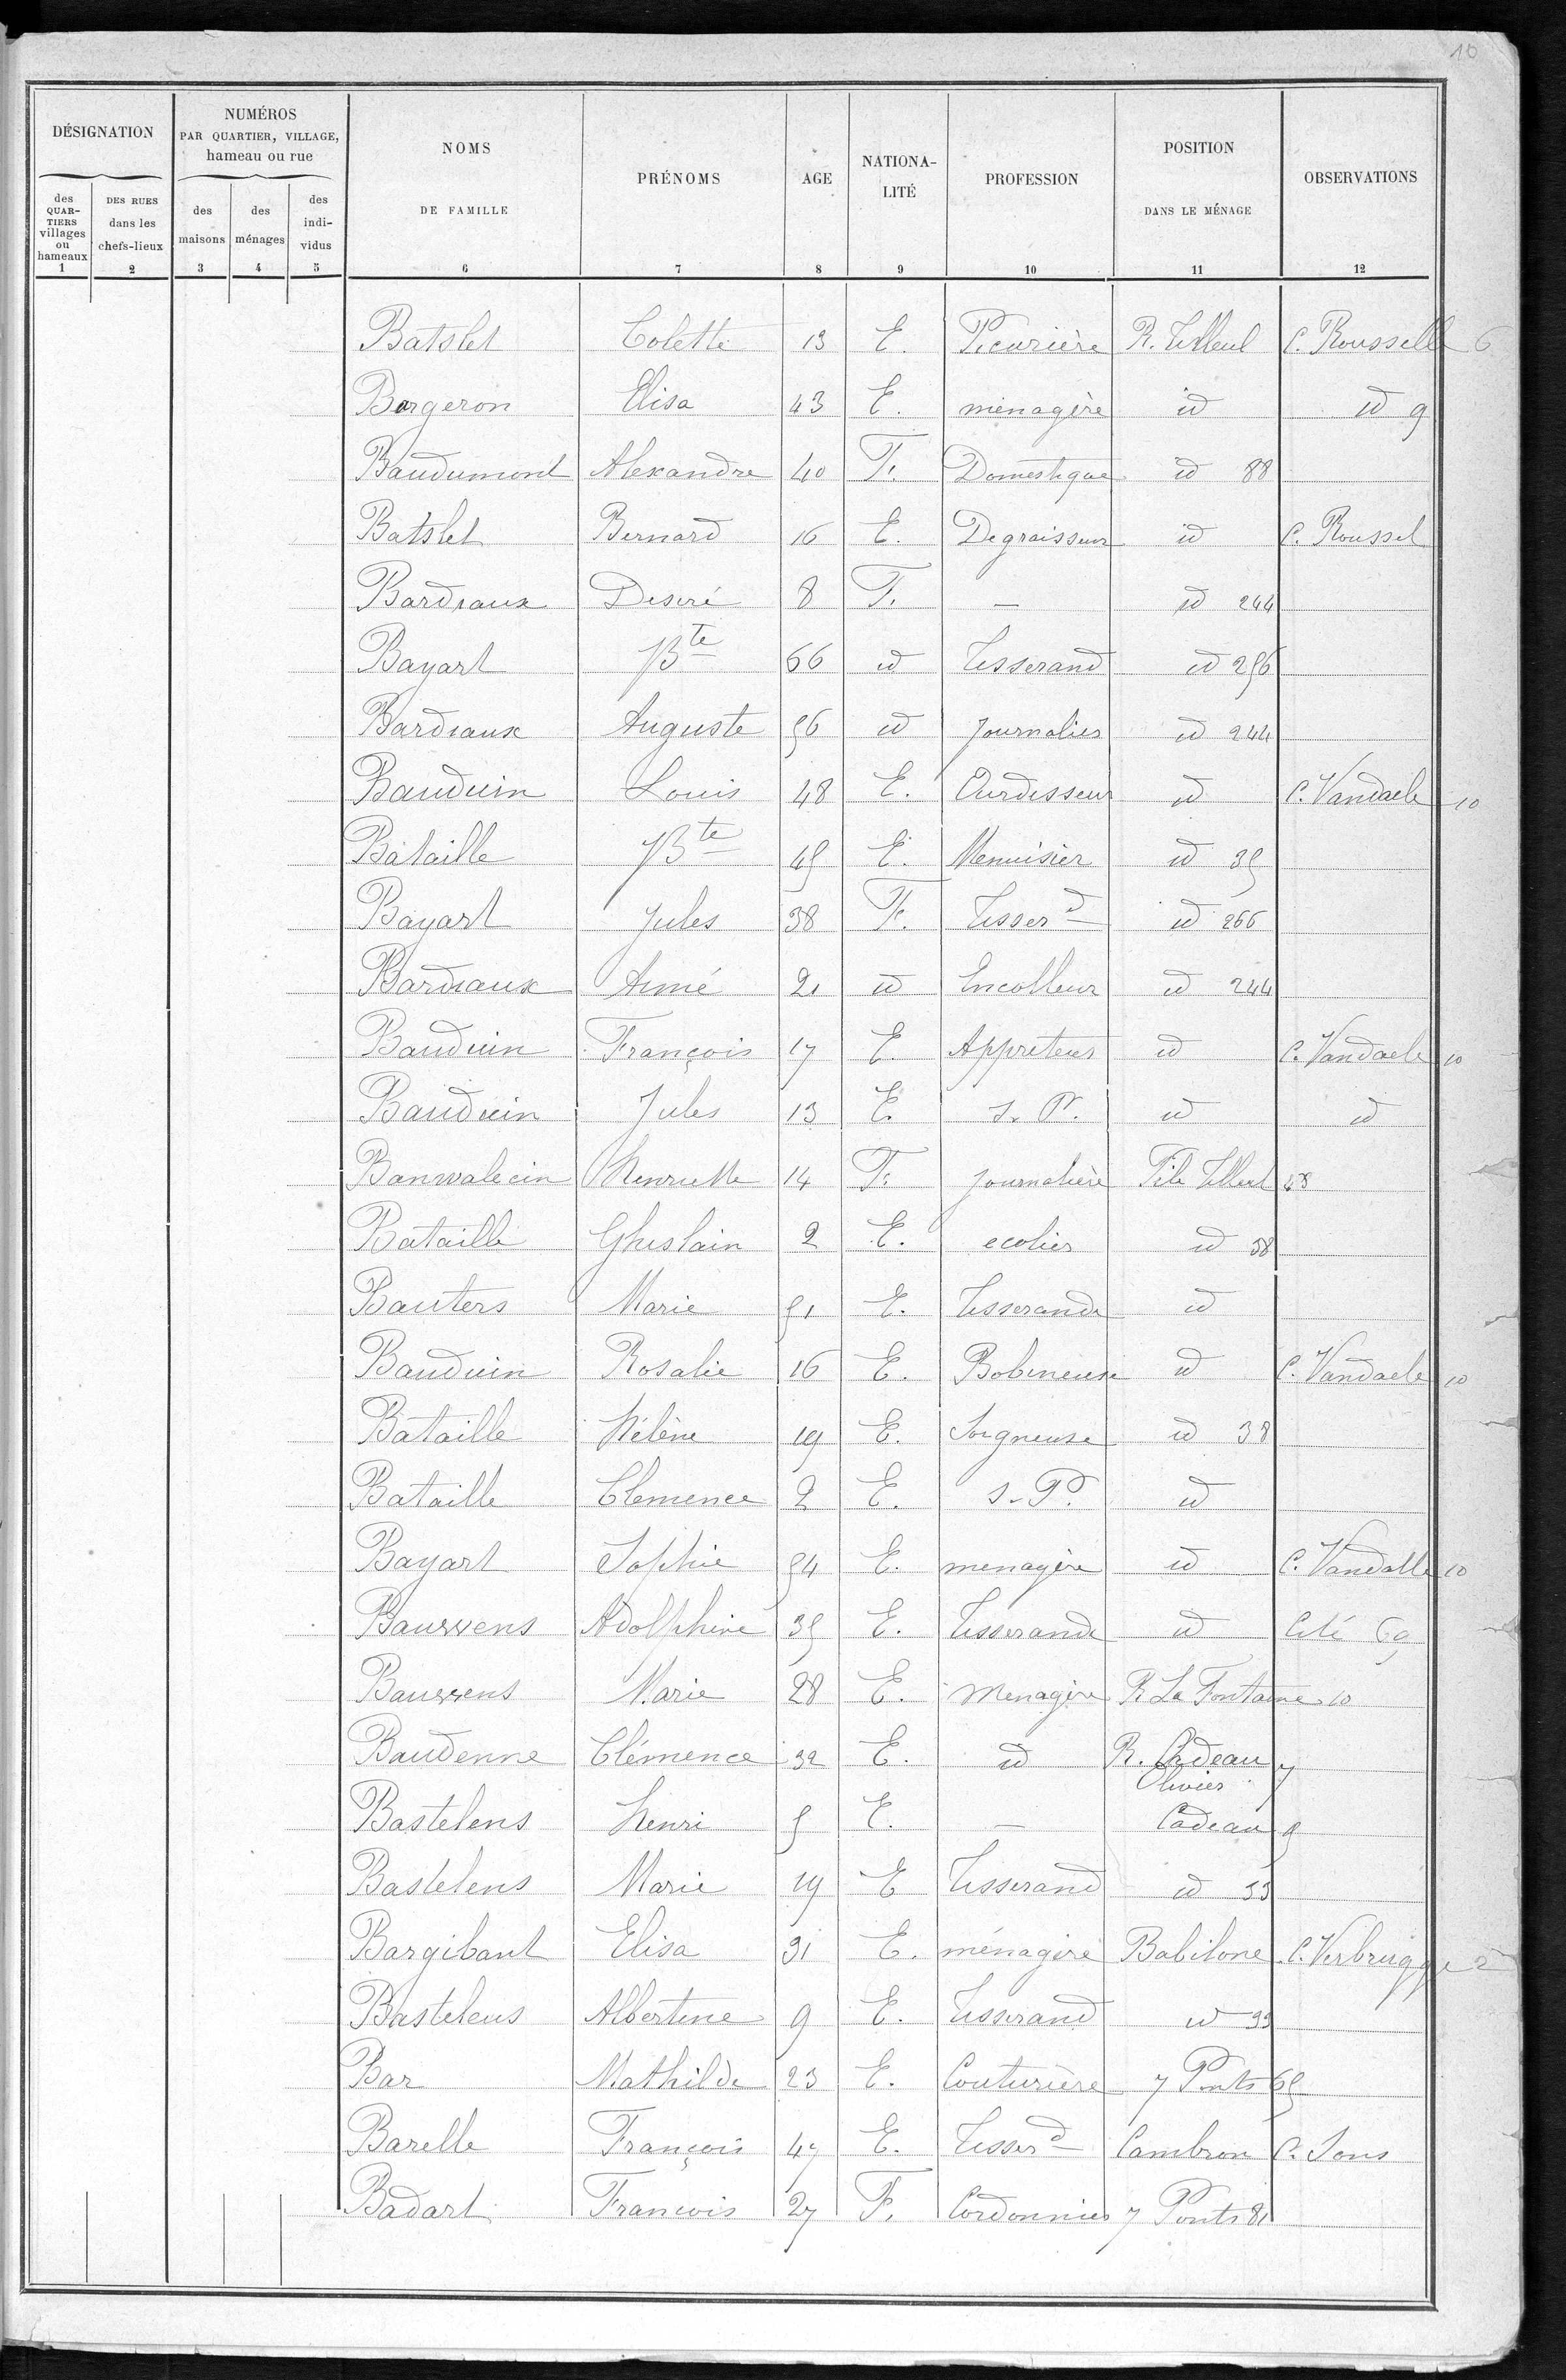 10
DÉSIGNATION
NUMÉROS
PAR QUARTIER, VILLAGE,
hameau ou rue
NOMS
DE FAMILLE
PRÉNOMS
AGE
NATIONA-
LITÉ
PROFESSION
POSITION
DANS LE MÉNAGE
OBSERVATIONS
des
QUAR-
TIERS
villages
ou
hameaux
DES RUES
dans les
chefs-lieux
des
maisons
des
ménages
des
indi-
vidus
1 2 3 4 5 6 7 8 9 10 11 12
Batslet Colette 13 E. Picurière R. Tilleul C. Rousselle 6
Bargeron Elisa 43 E. ménagère id id 9
Baudumont Alexandre 40 F. Domestique id 88
Batslet Bernard 16 E. Degraisseur id C. Roussel
Bardiaux Desiré 8 F. — id 244
Bayart Bte 66 id Tisserand id 256
Bardiaux Auguste 56 id journalier id 244
Bauduin Louis 48 E. Ourdisseur id C. Vandaele 10
Bataille Bte 45 E. Menuisier id 35
Bayart Jules 38 F. Tisserd id 266
Bardiaux Aimé 21 id Encolleur id 244
Bauduin François 17 E. Appreteur id C. Vandaele 10
Bauduin Jules 13 E. s. P. id id
Banwalecin Henriette 14 F. journalière Tilleul 48
Bataille Ghislain 2 E. ecolier id 38
Bauters Marie 51 E. Tisserande id
Bauduin Rosalie 16 E. Bobineuse id C. Vandaele 10
Bataille Hélène 19 E. Soigneuse id 38
Bataille Clemence 2 E. s. P. id
Bayart Sophie 54 E. menagère id C. Vandalle 10
Bauwens Adolphine 35 E. Tisserande id Cité 69
Bauwens Marie 28 E. Menagère R La Fontaine 10
Baudenne Clémence 32 E. id R. Cadeau 7
Olivier
Bastelens Henri 5 E. — Cadeau 9
Bastelens Marie 19 E Tisserand id 33
Bargibant Elisa 31 E. ménagère Babilone C. Verbrugge 2
Bastelens Albertine 9 E. Tisserand id 33
Bar Mathilde 23 E. Couturière 7 Ponts 65
Barelle François 47 E. Tisserd Cambron C. Sons
Badart François 27 F. Cordonnier 7 Ponts 81